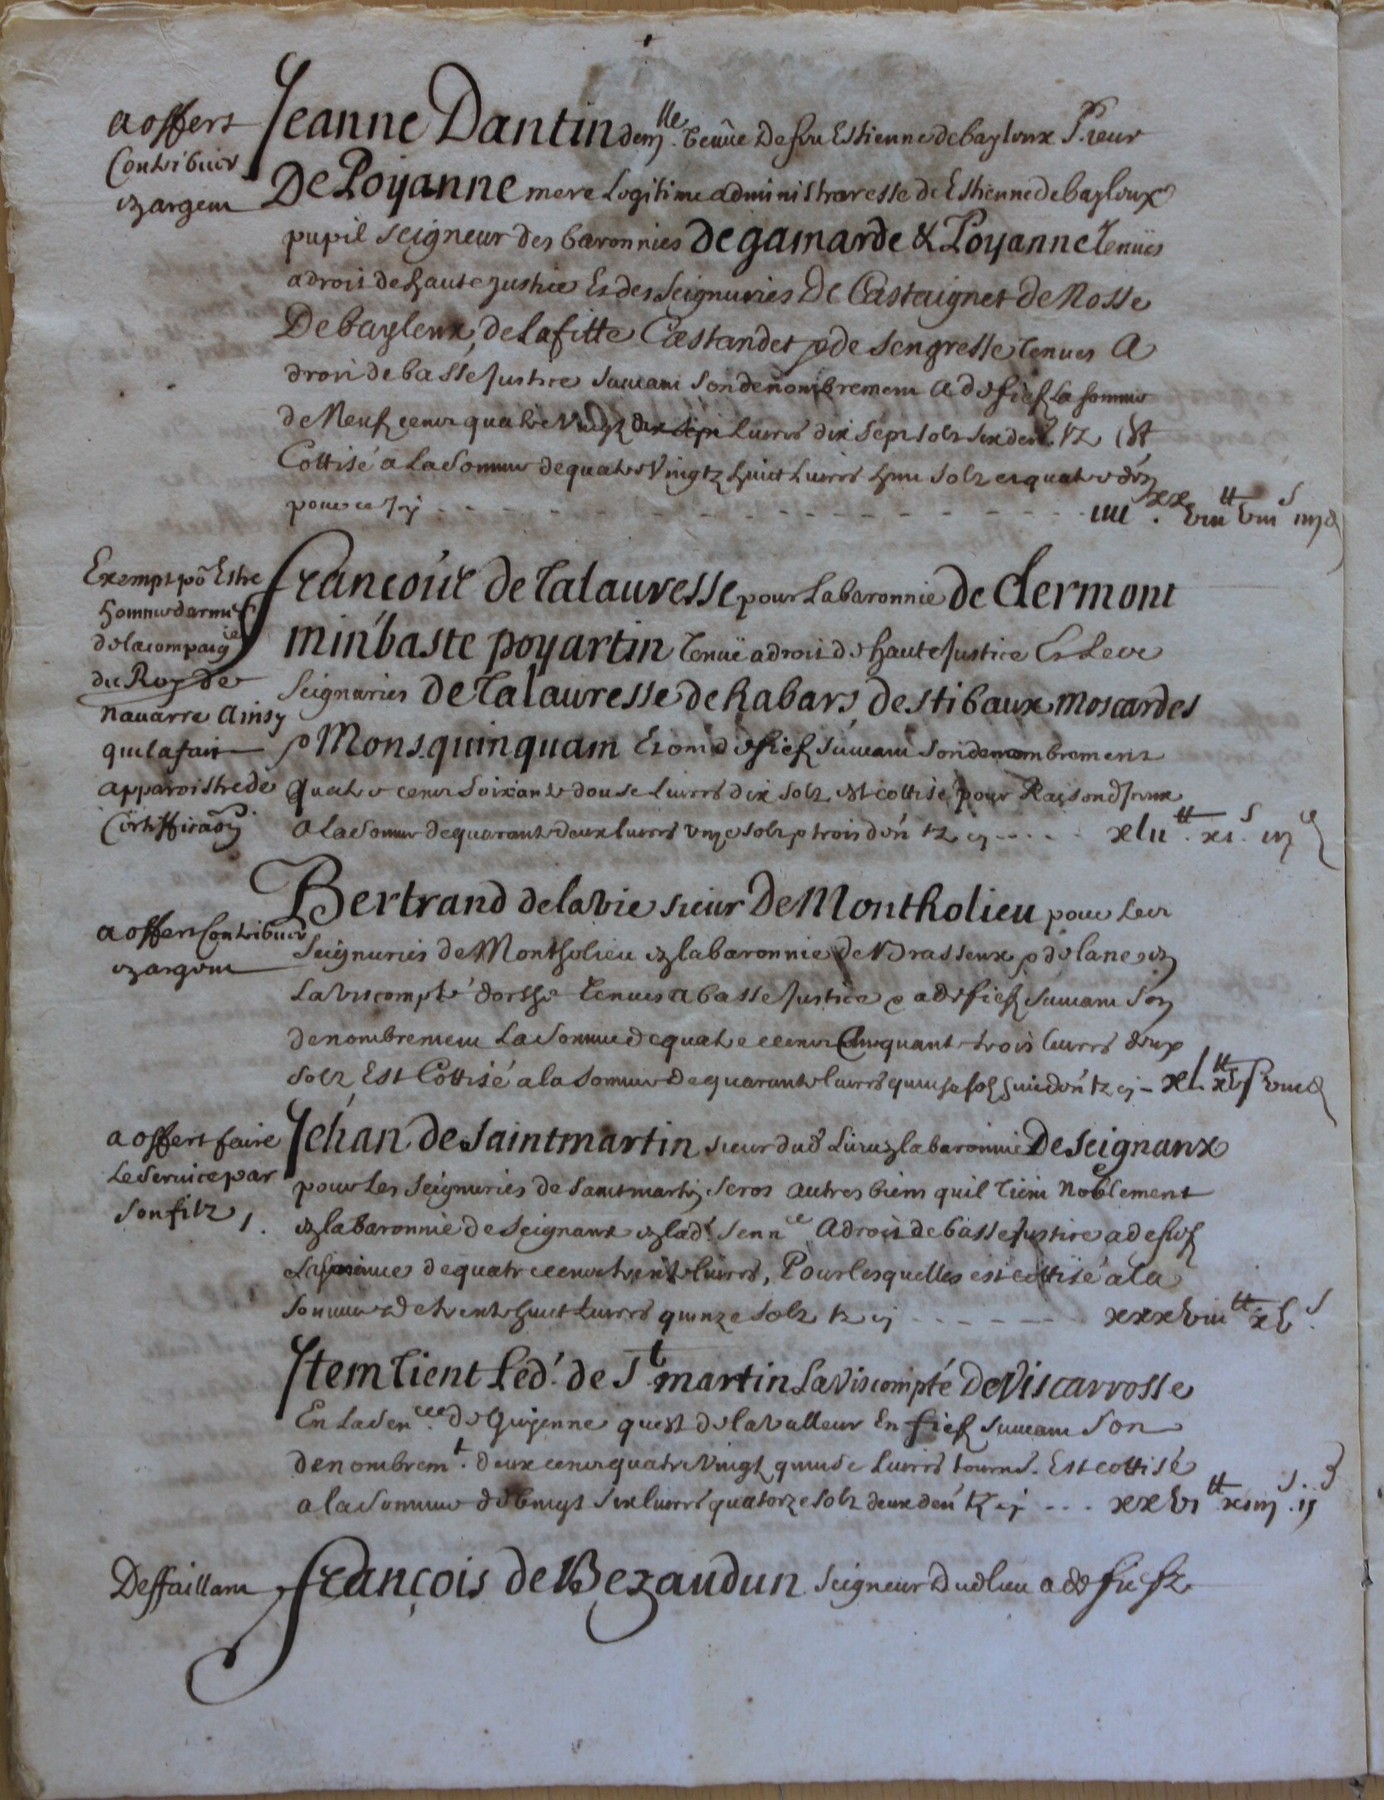 a offert
Contribuer
en argent
Jeanne Dantin dem.lle veuue de feu Estienne de bayleux Sieur
De Poyanne mere legitime administraresse de Estienne de bayleux
pupil seigneur des baronnies de gamarde & Poyanne tenues
a droit de haute justice Et des seignuries De Castaignet de Nosse
De bayleux, de lafitte Castandet & de sengresse tenues A
droit de basse Justice suiuant son denombrement a de fief la somme
de Neuf cens quatre vingt dix sept liures dix sept solz six den. tz Est
Cottisé a la somme de quatre vingtz huict liures huit solz et quatre den
pour ce Cy - - - iiii.xx viii tt viii s iiij d
Exempt po.r Estre
homme darmes
de la compaig.ie
du Roy de
nauarre Ainsy
quil a fait
apparoistre de
Certiffica.on
francois de Talauresse pour la baronnie de Clermont
minbaste poyartin tenuë a droit de haute Justice Et les
seignuries de Talauresse de habars, de stibaux moscardes
& Monsquinquam Et ont de fief suiuant son denombrement
Quatre cens soixante douse liures dix solz est cottisé pour Raison diceux
a la somme de quarante deux liures unze solz & trois den tz cy - - - xlii tt. xi. s iij d
a offert Contribuer
en argent
Bertrand de la vie sieur De Montholieu pour les
seignuries de Montholieu en la baronnie de Brasseux & de lane en
la viscompté dorthe tenues a basse Justice & a de fief suiuant son
denombrement la somme de quatre cens cinquante trois liures deux
solz Est Cottisé a la somme de quarante liures quinse solz huit den tz cy - xl. tt xv s viii d
a offert faire
le seruice par
son filz /.
Jehan de saint martin sieur dud lieu en la baronnie De seignanx
pour les seignuries de saint martin, seros autres biens quil tient noblement
en la baronnie de seignanx en lad. senn.ce a droit de basse Justice a de fief
la somme de quatre cens trente liures, Pour lesquelles est cottisé a la
somme de trente huict liures quinze solz tz cy - - - xxxviii tt xv s.
Item tient Led. de S.t martin la viscompté de Viscarrosse
En la sen.cee de Guyenne quest de la valleur En fief suiuant son
denombrem.t deux cens quatre vingt quinse liures tourns. Est cottisé
a la somme de vingt six liures quatorze solz deux den tz cy - - - xxvi tt xiiij s. ij d
Deffaillant
françois de Bezaudun seigneur Dud lieu a de fiefz